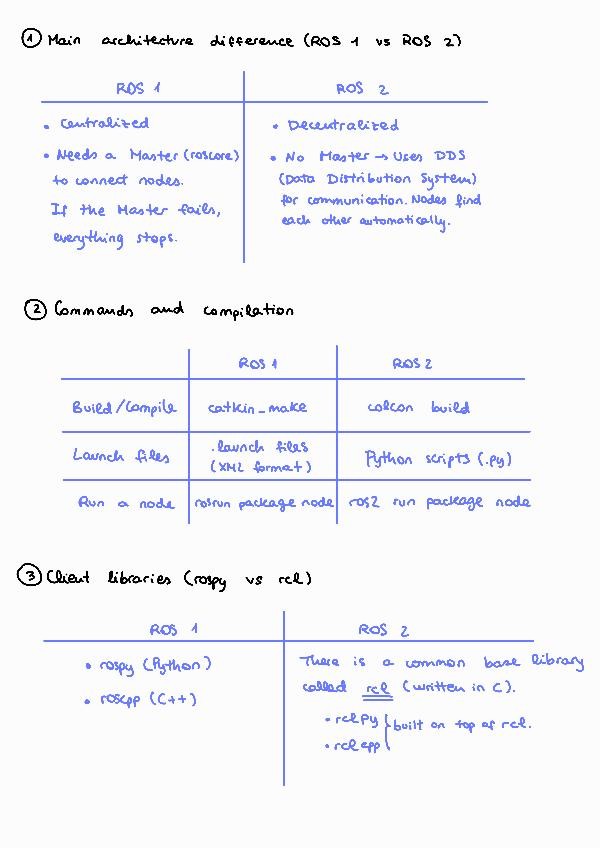 ① Main architecture difference (ROS 1 vs ROS 2)
ROS 1
• Centralized
• Needs a Master (roscore)
to connect nodes.
If the Master fails,
everything stops.
ROS 2
• Decentralized
• No Master → Uses DDS
(Data Distribution System)
for communication. Nodes find
each other automatically.
② Commands and compilation
ROS 1 ROS 2
Build/Compile catkin_make colcon build
Launch files .launch files (XML format) Python scripts (.py)
Run a node rosrun package node ros2 run package node
③ Client libraries (rospy vs rcl)
ROS 1
• rospy (Python)
• roscpp (C++)
ROS 2
There is a common base library
called rcl (written in C).
• rclpy } built on top of rcl.
• rclcpp